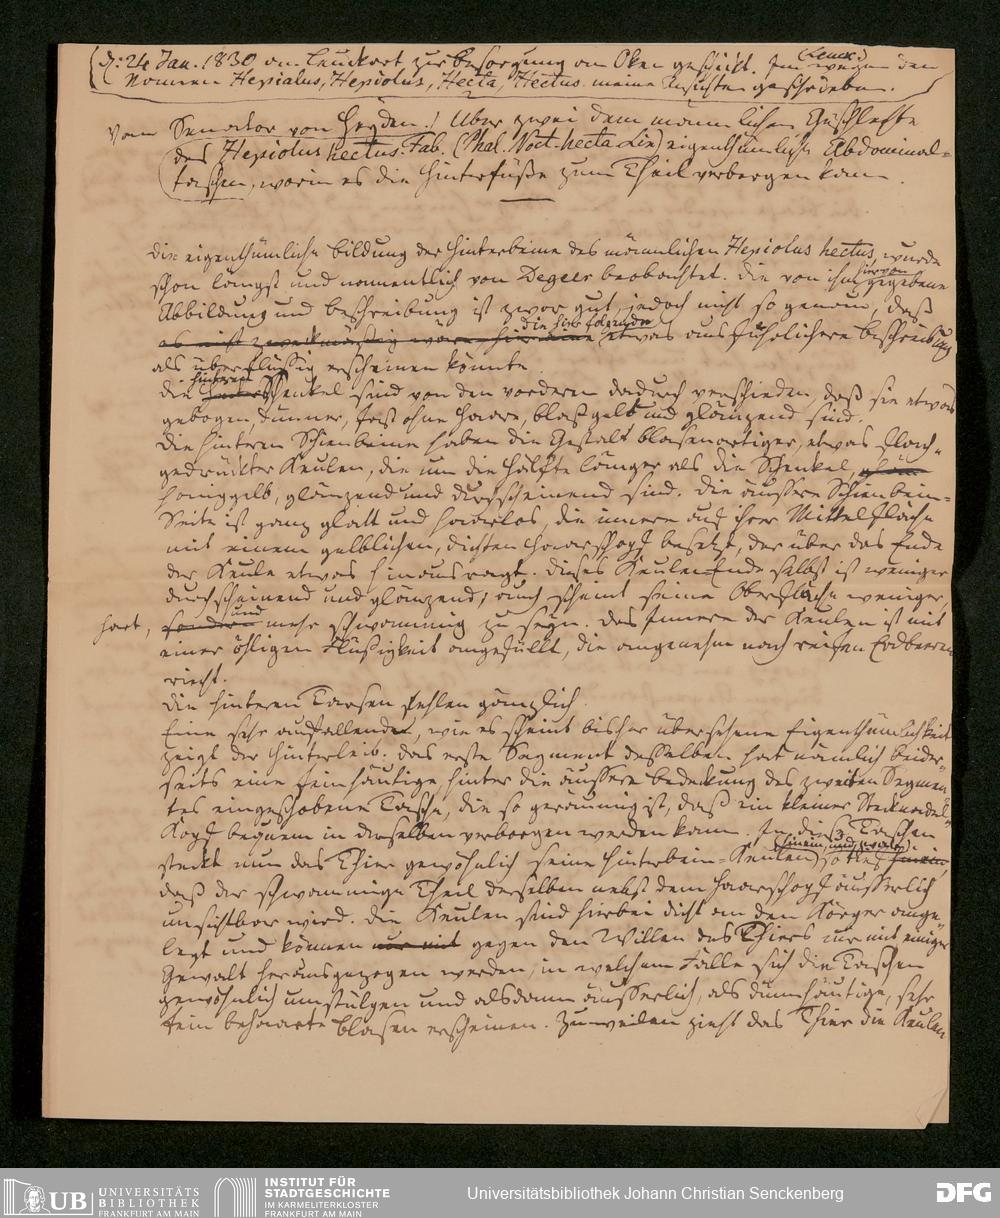 (d: 24 Jan. 1830 an Leuckart zur Besorgung an Oken geschickt. Ihm (Leuck:) wegen den
Nomen Hepialus, Hepiolus, Hecta, Hectus meine Ansichten geschrieben.
Vom Senator von Heyden.) Über zwei dem männlichen Geschlechte
des Hepiolus hectus. Fab. (Phal. Noct. hecta Lin) eigenthümliche Abdominal=
taschen, worin es die Hinterfüße zum Theil verbergen kann.
Die eigenthümliche Bildung der Hinterbeine des männlichen Hepiolus hectus, wurde
schon längst und namentlich von Degeer beobachtet. Die von ihm hiervon gegebene
Abbildung und Beschreibung ist zwar gut, jedoch nicht so genau, daß
es nicht zweckmäßig wäre hier eine die hier folgende etwas ausführlichere Beschreibung
als überflüssig erscheinen könnte.
Die hinteren Schenkel sind von den vorderen dadurch verschieden, daß sie etwas
gebogen, dünner, fast ohne Haare, blaßgelb und glänzend sind.
Die hinteren Schienbeine haben die Gestalt blasenartiger, etwas flach=
gedrückter Keulen, die um die Hälfte länger als die Schenkel,
honiggelb, glänzend und durchscheinend sind. Die äussere Schienbein=
Seite ist ganz glatt und haarlos, die innere auf ihrer Mittelfläche
mit einem gelblichen, dichten Haarschopf besetzt, der über das Ende
der Keule etwas hinausragt. Dieses Keulen-Ende selbst ist weniger
durchscheinend und glänzend; auch scheint seine Oberfläche weniger
hart, sondern und mehr schwammig zu seyn. Das Innere der Keulen ist mit
einer öhligen Flüßigkeit angefüllt, die angenehm nach reifen Erdbeeren
riecht.
Die hinteren Tarsen fehlen gänzlich
Eine sehr auffallende, wie es scheint bisher übersehene Eigenthümlichkeit
zeigt der Hinterleib. Das erste Segment desselben hat nämlich beider=
seits eine feinhäutige, hinter die äussere Bedeckung des zweiten Segmen
tes eingeschobene Tasche, die so geräumig ist, daß ein kleiner Stecknadel=
Kopf bequem in derselben verborgen werden kann. In diese Taschen
steckt nun das Thier gewöhnlich seine Hinterbein=Keulen (hinein, und zwar) so tief hinein,
daß der schwammige Theil derselben nebst dem Haarschopf äusserlich
unsichtbar wird. Die Keulen sind hierbei dicht an den Körper ange=
legt und können nur mit gegen den Willen des Thiers nur mit einiger
Gewalt herausgezogen werden, in welchem Falle sich die Taschen
gewöhnlich umstülpen und alsdann äusserlich, als dünnhäutige, sehr
fein behaarte Blasen erscheinen. Zuweilen zieht das Thier die Keulen
UB UNIVERSITÄTS
BIBLIOTHEK
FRANKFURT AM MAIN
INSTITUT FÜR
STADTGESCHICHTE
IM KARMELITERKLOSTER
FRANKFURT AM MAIN
Universitätsbibliothek Johann Christian Senckenberg
DFG